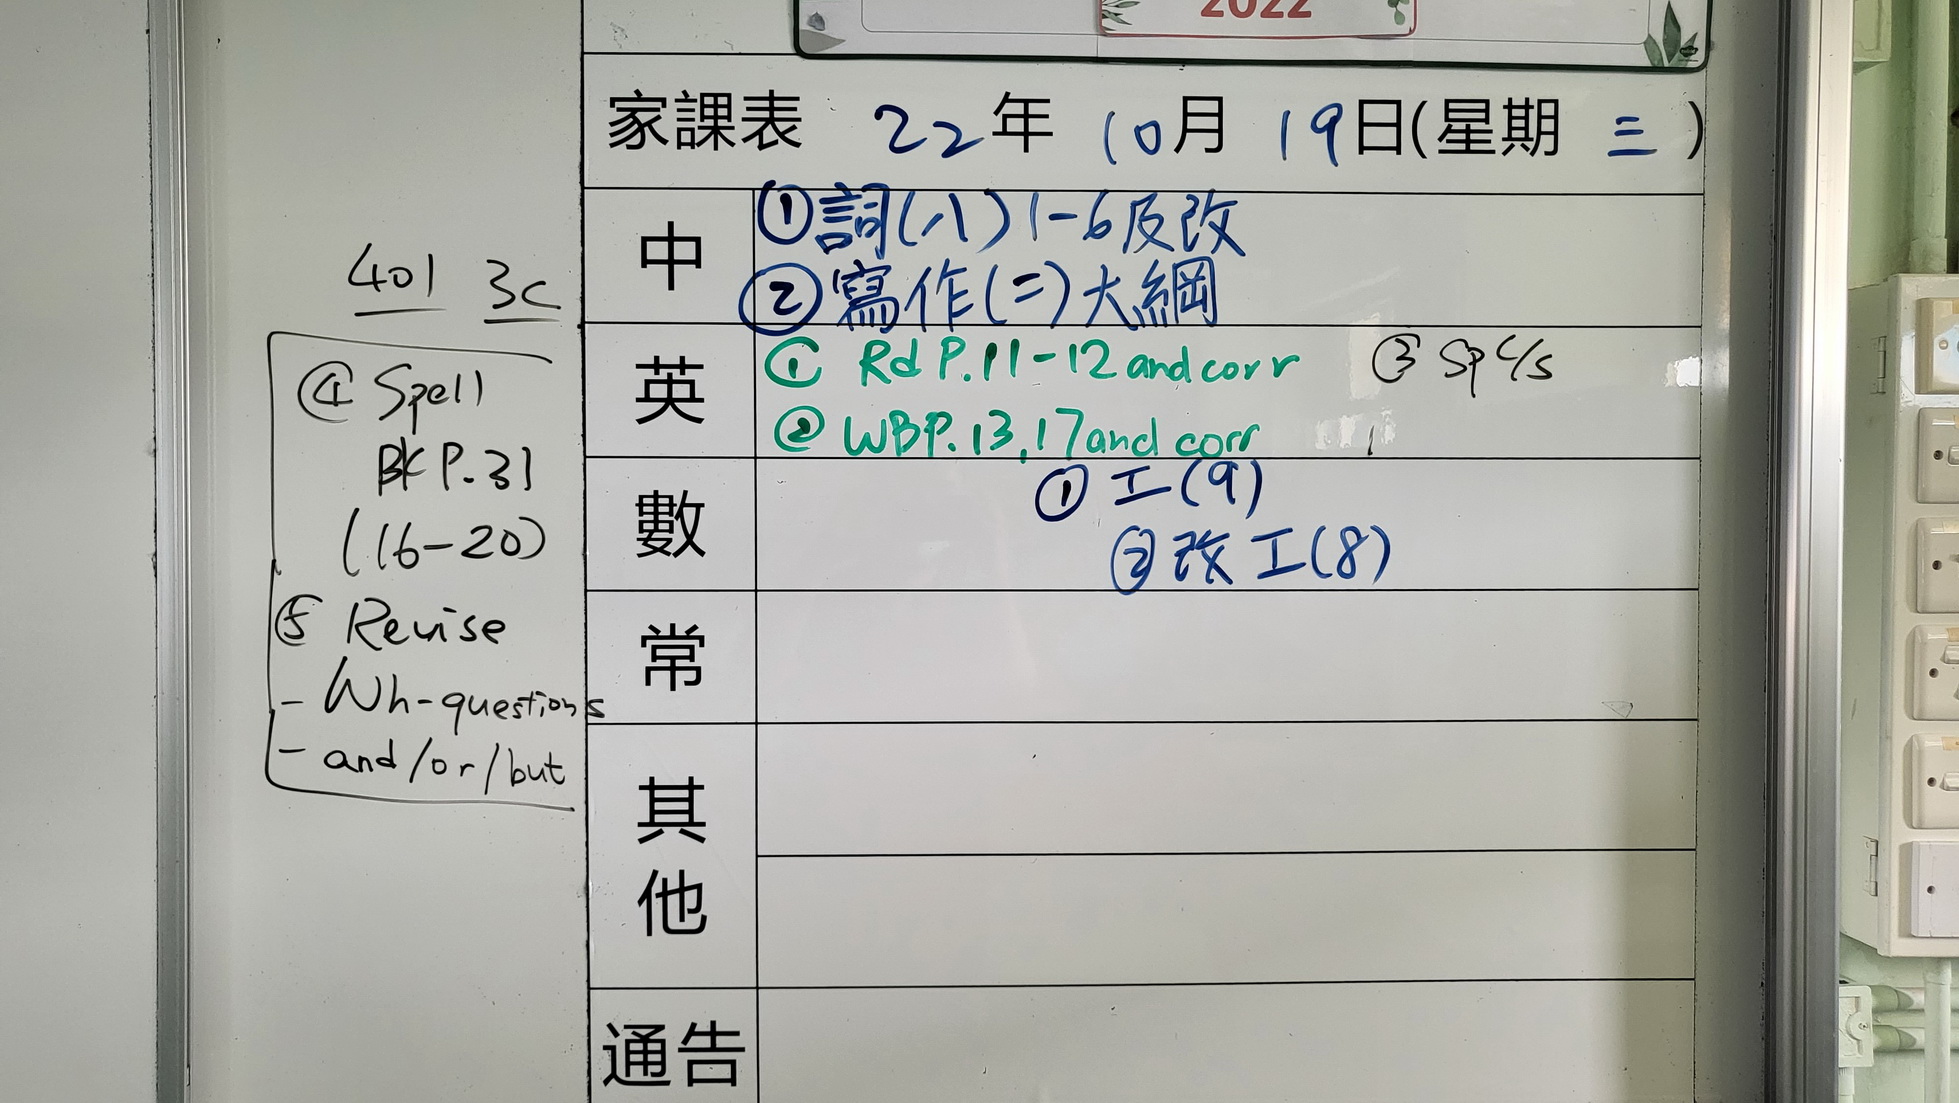 2022
家課表 22年 10月 19日(星期 三)
中
①詞(八)1-6及改
②寫作(二)大綱
英
① Rd P.11-12 and corr ③ Sp c/s
② WB P.13,17 and corr
數
① 工(9)
② 改 工(8)
常
其他
通告
401 3C
④ Spell
BK P.31
(16-20)
⑤ Revise
- Wh-questions
- and/or/but